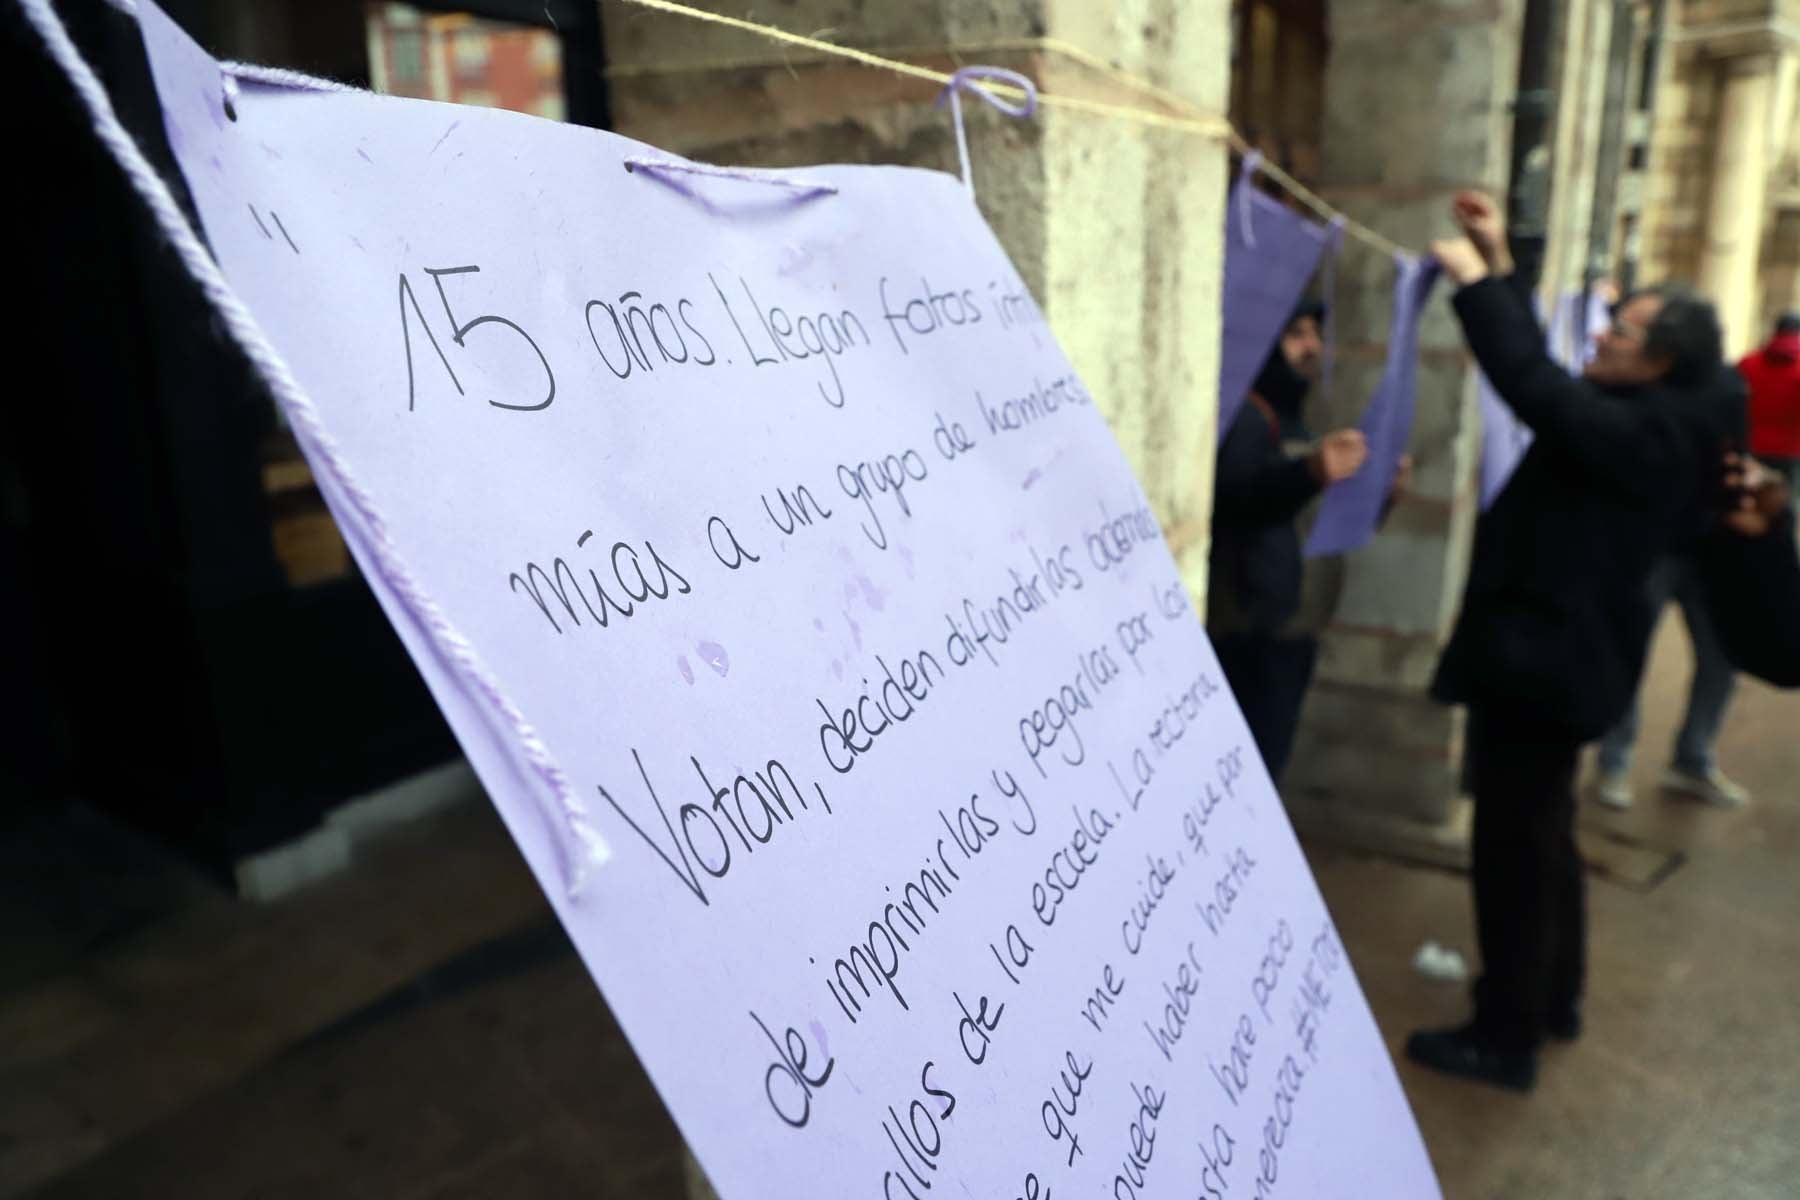 "
15 años. Llegan fotos ínti
mías a un grupo de hombres.
Votan, deciden difundirlas además
de imprimirlas y pegarlas por los
illos de la escuela. La rectora
que me cuide, que por
puede haber hasta
sta hace poco
merezca. #METO